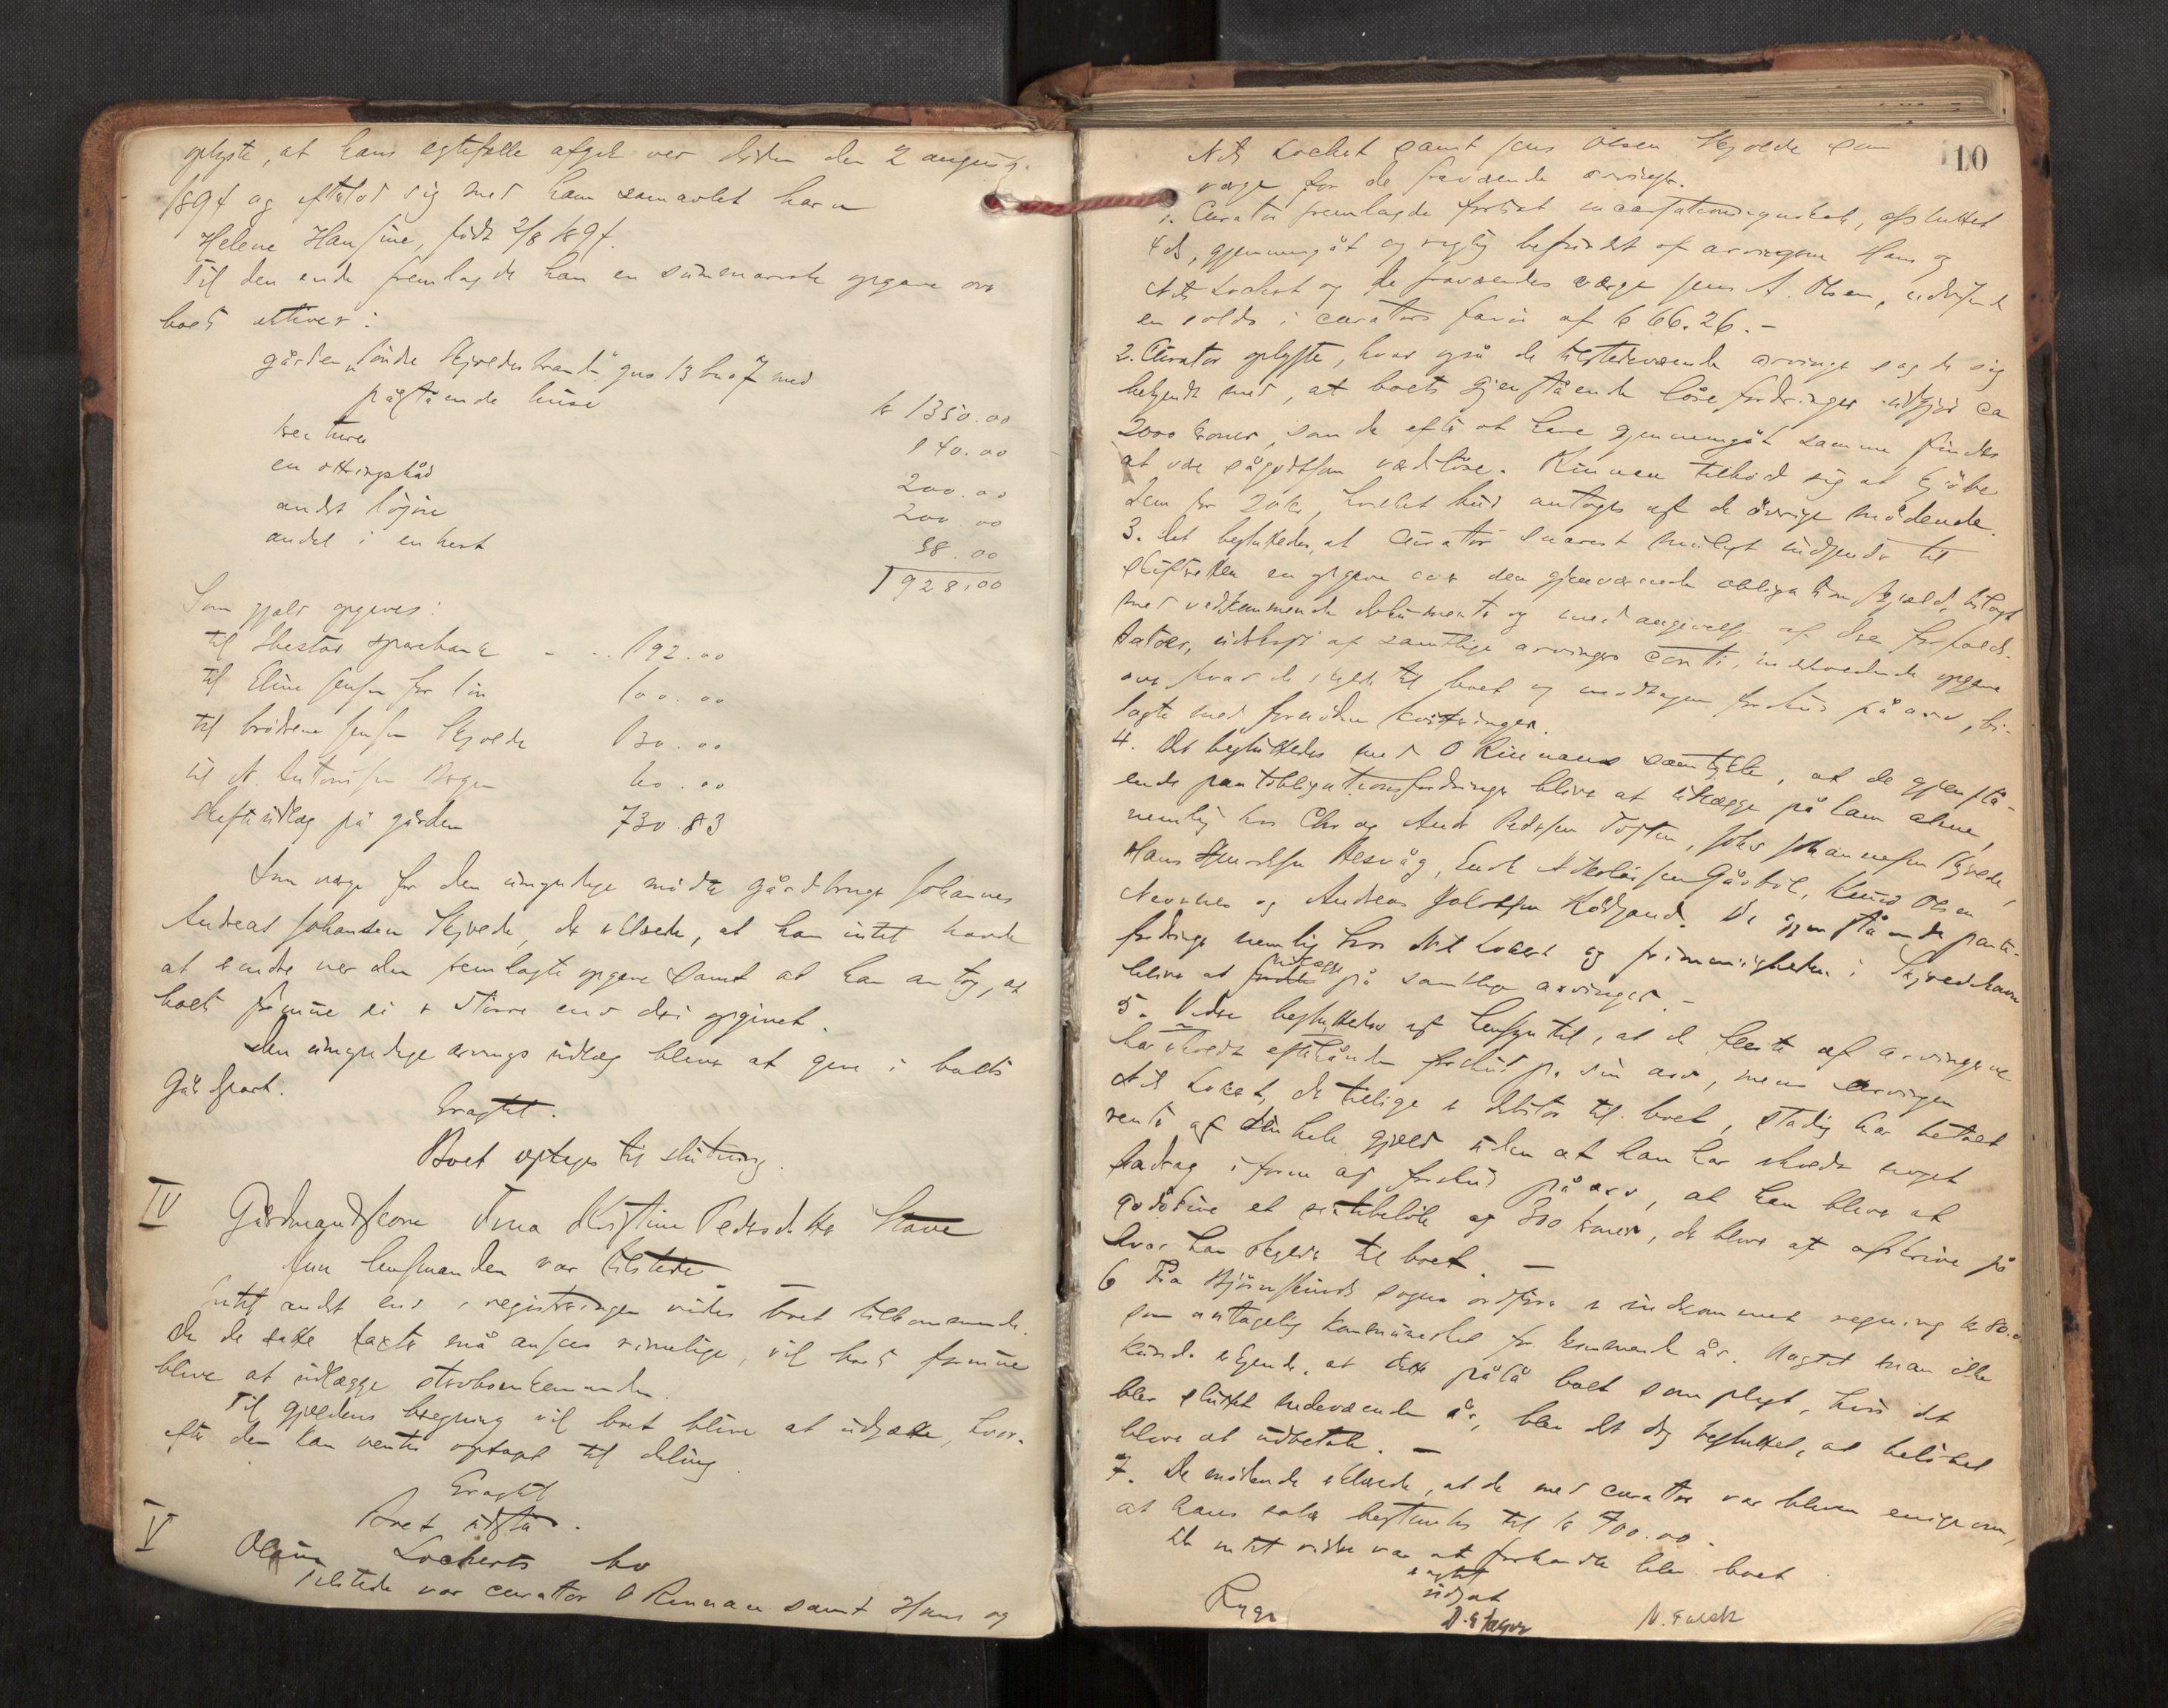 oplyste, at hans egtefælle afgik ved døden den 2 august
1894 og efterlod sig med ham samavlet barn
Helene Hansine, født 2/8 1894.
Til den ende fremlagde han en summarisk opgave over
boets aktiver:
gården Skjvedes gno 13 bno 7 med
påstående huse kr 1350.00
140.00
en ottringsbåd 200.00
andet løsøre 200.00
andel i en hest 38.00
1928.00
Som gjæld opgives:
til sparebank - - 192.00
til Eline Jensen for løn 100.00
til brødrene Jensen Skjvede 130.00
til A. Antonisen 60.00
Skifteudlæg på gården 730.83
Som værge for den umyndige mødte gårdbruger Johannes
Andreas Johansen Skjvede, der erklærede, at han intet havde
at erindre ved den fremlagte opgave samt at han antog, at
boets formue ei er større end deri opgivet.
Den umyndige arvings udlæg bliver at give i boets
gårdpart.
Eragtet.
Boet optages til slutning.
IV Gårdmandskone Kristine Pedersdatter Stave
Kun lensmanden var tilstede
Intet andet end i registreringen vides boet tilkommende.
Da de satte taxter må ansees rimelige, vil boets formue
blive at udlægge
Til gjældens beregning vil boet blive at udsætte, hvor-
efter den kan ventes optaget til deling.
Eragtet
Boet udstår.
V Lockerts bo
Tilstede var curator O Rinnan samt Hans og
10
Nils Lockert samt Jens Olsen Skjvede som
værge for de fraværende arvinger.
1. Curator fremlagde fortsat incassationsregnskab, afsluttet
4 ds, gjennemgåt og rigtig befundet af arvingerne Hans og
Nils Lockert og de fraværendes værge Jens A. Olsen, udvisende
en saldo i curators favør af kr 66.26.-
2. Curator oplyste, hvad også de tilstedeværende arvinger sagde sig
bekjendt med, at boets gjenstående løse fordringer udgjør ca
2000 kroner, som de efter at have gjennemgåt samme fandtes
at være sågodtsom værdiløse. Rinnan tilbød sig at kjøbe
dem for 20 kr, hvilket bud antoges af de øvrige mødende.
3. Det besluttedes, at curator snarest muligt indsender til
skifteretten en opgave over den gjenværende obligationsgjæld, bilagt
med vedkommende dokumenter og med angivelse af dens forfalds-
datoer, udskrift af samtlige arvingers conti, indeholdende opgave
over hvad de skylder til boet og modtagen forskud på arv, bi-
lagte med fornødne kvitteringer.
4. Det besluttedes med O Rinnans samtykke, at de gjenstå-
ende pantobligationsfordringer bliver at udlægge på ham alene,
nemlig hos Chr og Andr Pedersen Toften, Johs Johannesen Skjvede,
Hans Hesvåg, Enok Nikolaisen Gåsbøl, Knud Olsen
og Andreas De gjenstående pante-
fordringer nemlig hos Nils Lockert og i Skjvedshavn
bliver at udlægge på samtlige arvinger. -
5. Videre besluttedes af hensyn til, at de fleste af arvingerne
har erholdt forskud på sin arv, mens arvingen
Nils Lockert, der tillige er debitor til boet, stadig har betalt
rente af sin hele gjæld uden at han har erholdt noget
fradrag i form af forskud på arv, at han bliver at
godskrive et rentebeløb af 300 kroner, der bliver at afskrive på
hvad han skylder til boet. -
6 Fra Bjørnskinds sogns ordfører er indkommet regning kr 80.
som antagelig kommuneskat for kommende år. Uagtet man ikke
kunde erkjende, at dette pålå boet som pligt, hvis det
blev sluttet indeværende år, blev det dog besluttet, at beløbet
bliver at udbetale. -
7. De mødende erklærede, at de med curator var bleven enige om,
at hans salær bestemtes til kr 700.00.
Da intet videre var at forhandle blev boet
eragtet
udsat
Rygr D. Stager N.